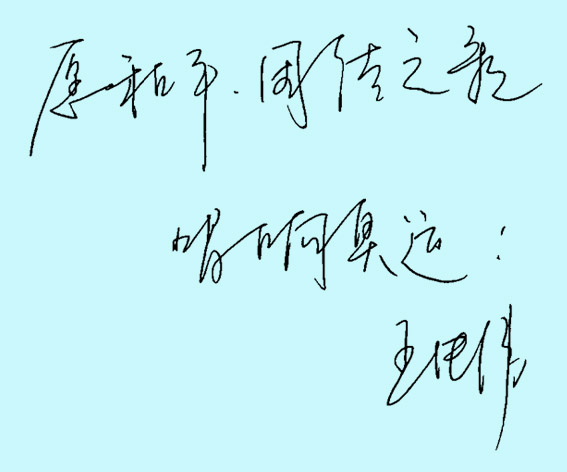 愿和平、团结之歌
唱响奥运！
王